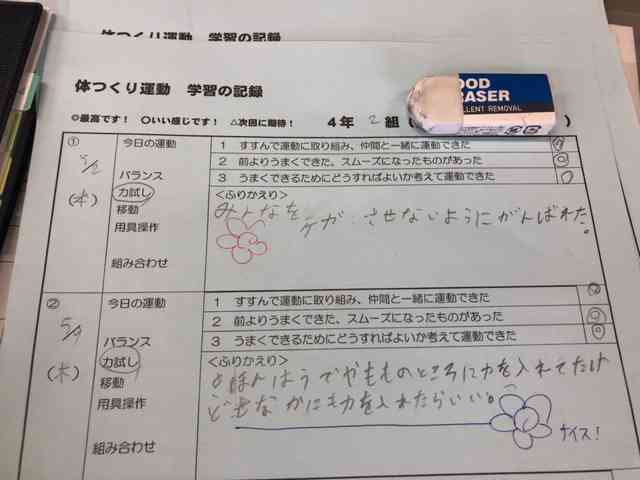 体つくり運動 学習の記録
体つくり運動 学習の記録
◎最高です！ ○いい感じです！ △次回に期待！ 4年 2組（
OOD
ERASER
ELLENT REMOVAL
① 今日の運動
(木)
バランス
力試し
移動
用具操作
組み合わせ
1 すすんで運動に取り組み、仲間と一緒に運動できた ◎
2 前よりうまくできた、スムーズになったものがあった ◎
3 うまくできるためにどうすればよいか考えて運動できた ○
<ふりかえり>
みんなを ケガ させないようにがんばれた。
② 今日の運動
(木)
バランス
力試し
移動
用具操作
組み合わせ
1 すすんで運動に取り組み、仲間と一緒に運動できた ◎
2 前よりうまくできた、スムーズになったものがあった ◎
3 うまくできるためにどうすればよいか考えて運動できた ◎
<ふりかえり>
ところに力を入れてたけ
どせなかにも力を入れたらいい。
ナイス！